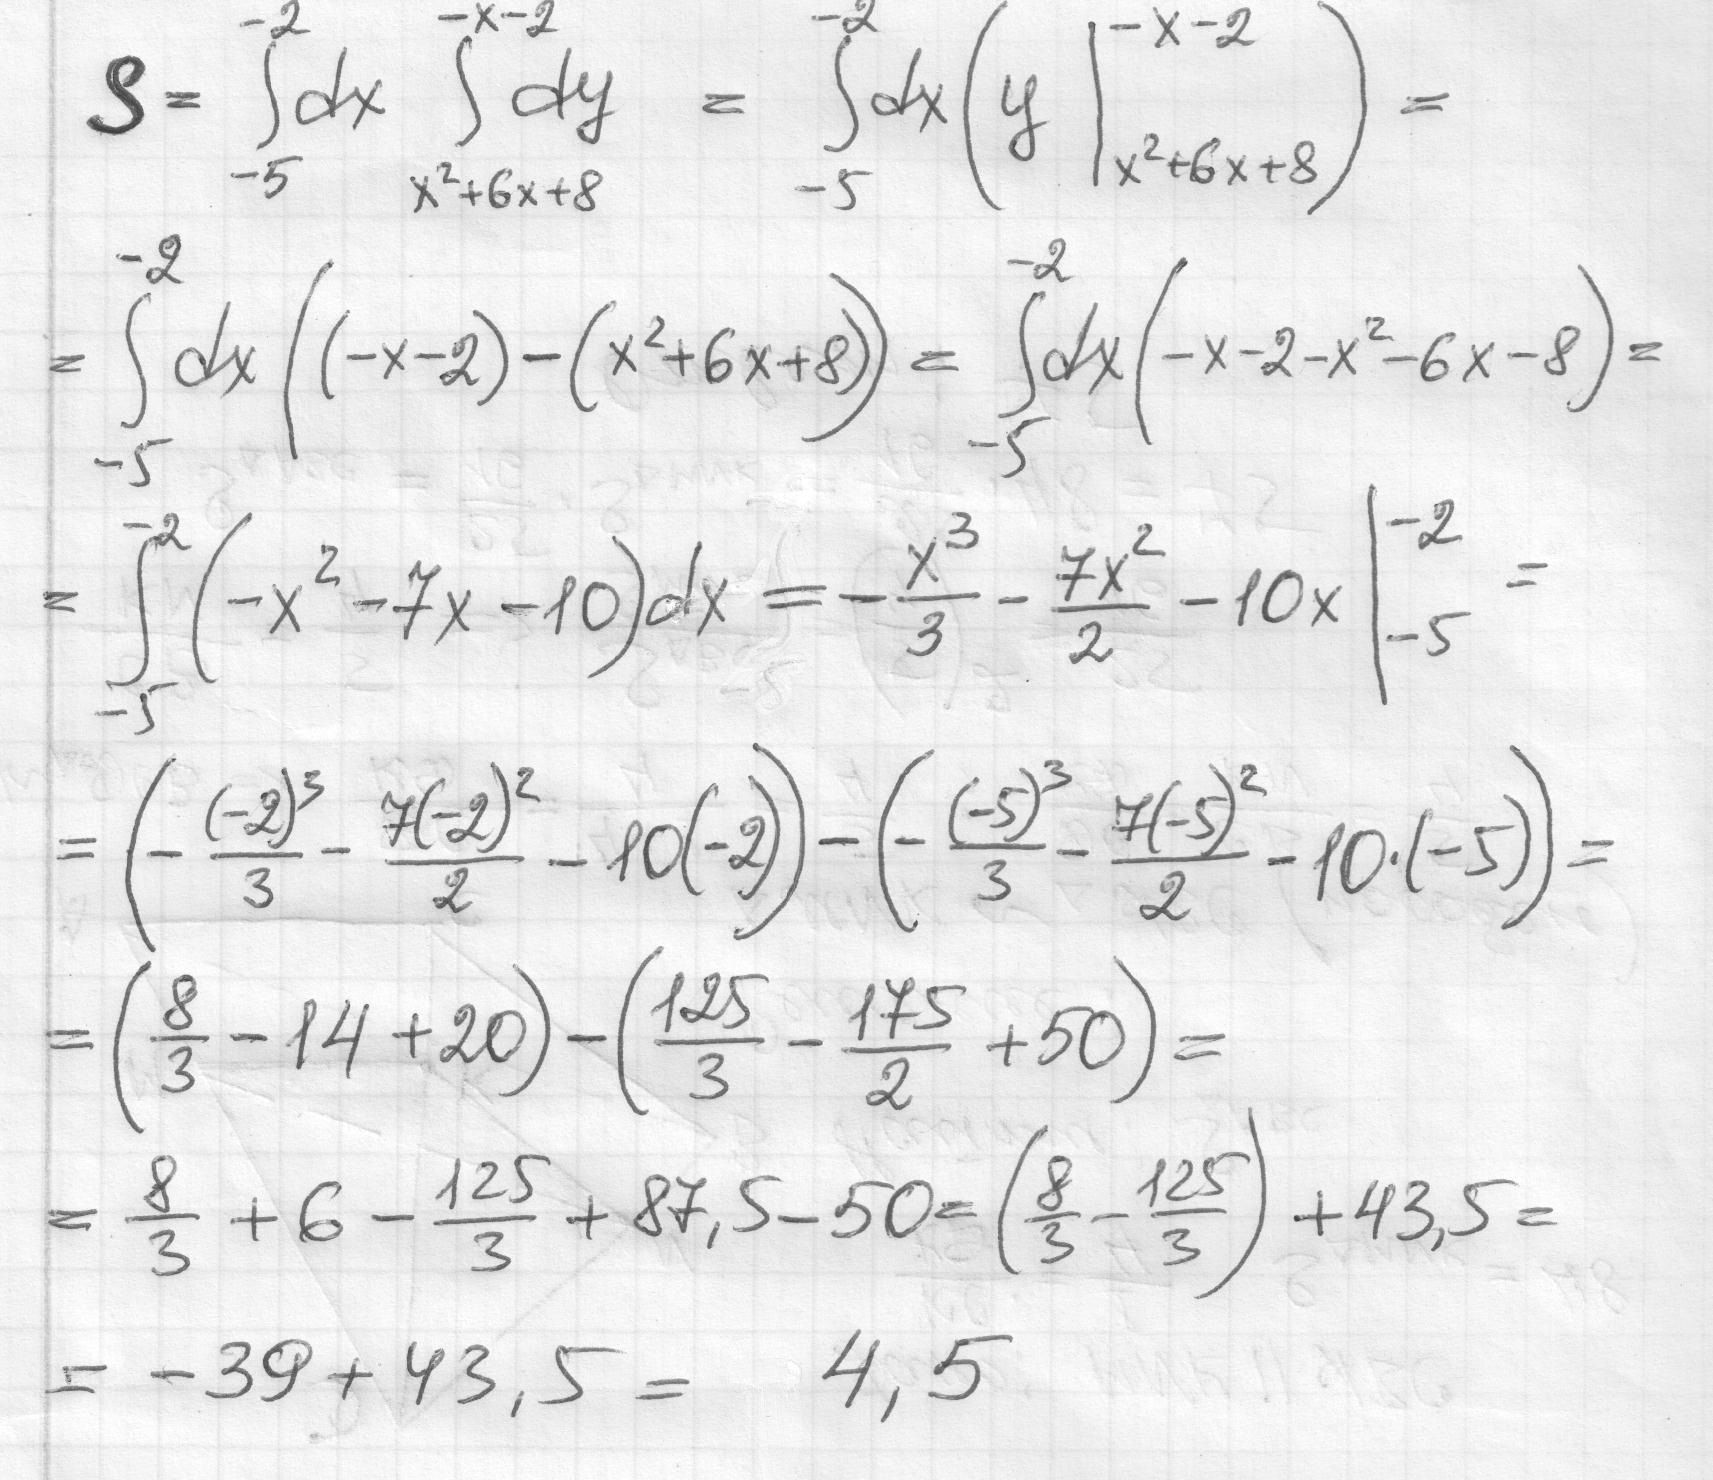 S = ∫_{-5}^{-2} dx ∫_{x²+6x+8}^{-x-2} dy = ∫_{-5}^{-2} dx ( y |_{x²+6x+8}^{-x-2} ) =
= ∫_{-5}^{-2} dx ((-x-2) - (x²+6x+8)) = ∫_{-5}^{-2} dx (-x-2-x²-6x-8) =
= ∫_{-5}^{-2} (-x²-7x-10) dx = - x³/3 - 7x²/2 - 10x |_{-5}^{-2} =
= (- (-2)³/3 - 7(-2)²/2 - 10(-2)) - (- (-5)³/3 - 7(-5)²/2 - 10·(-5)) =
= (8/3 - 14 + 20) - (125/3 - 175/2 + 50) =
= 8/3 + 6 - 125/3 + 87,5 - 50 = (8/3 - 125/3) + 43,5 =
= -39 + 43,5 = 4,5